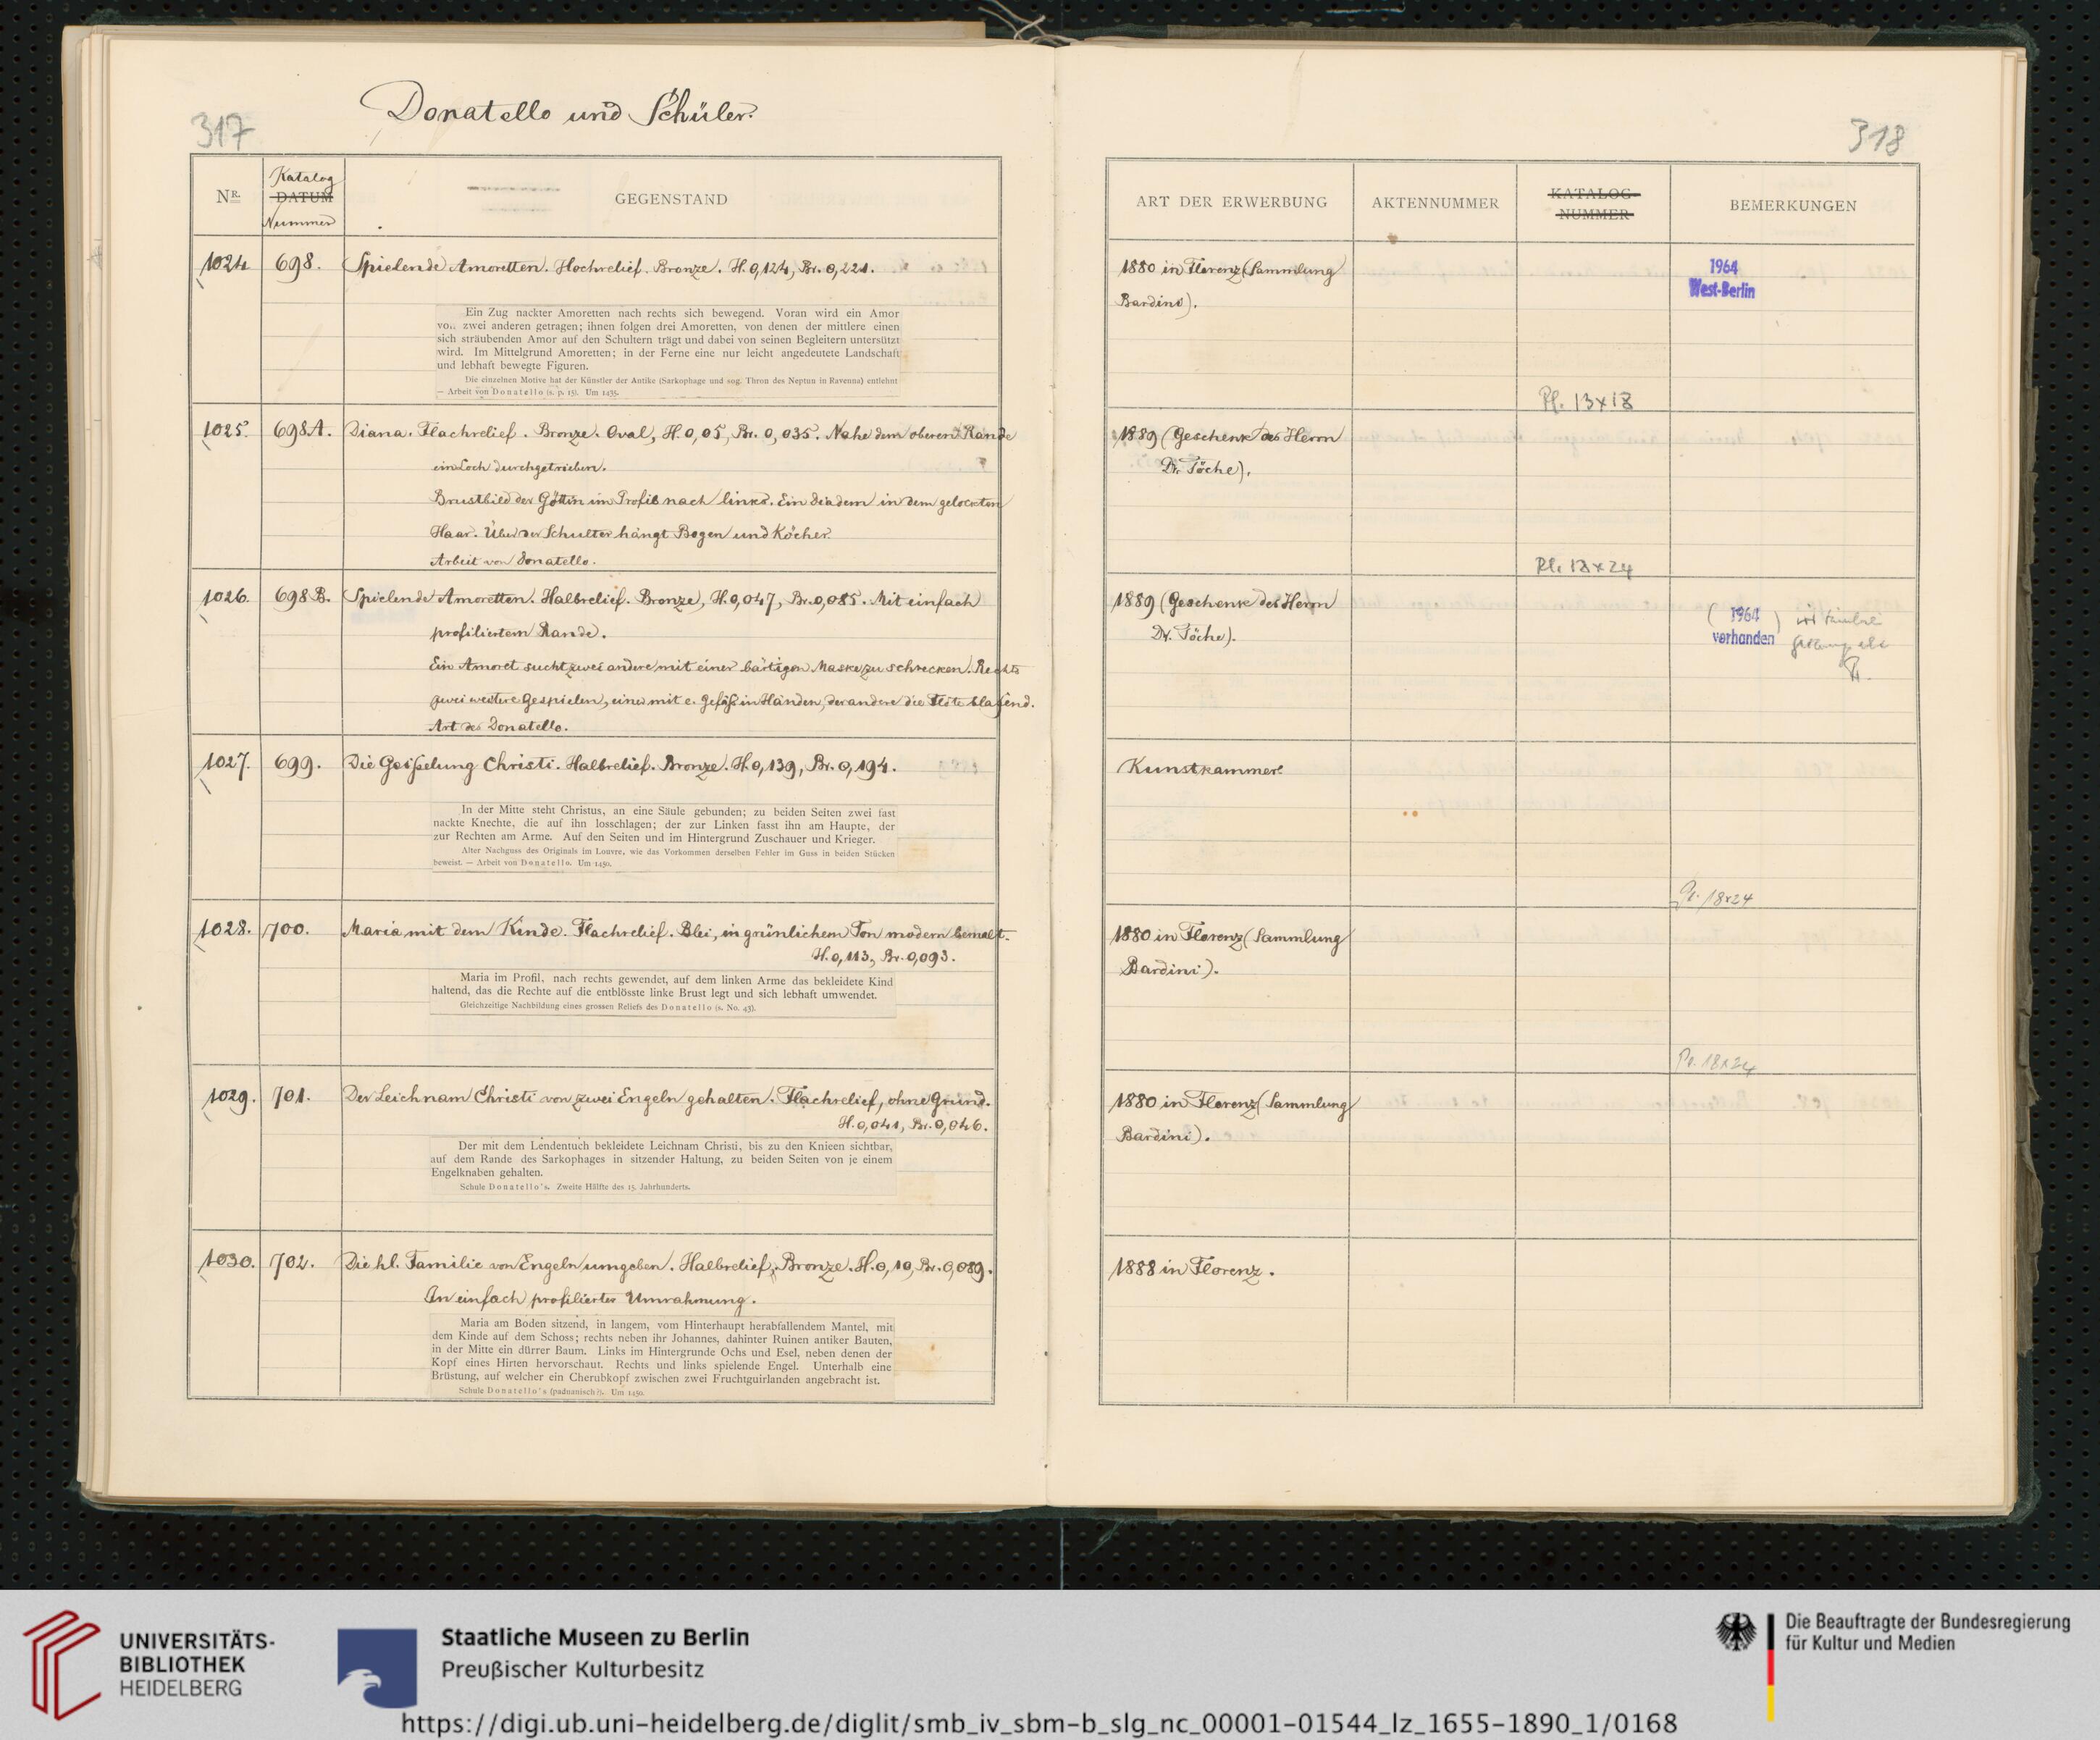 317
Donatello und Schüler.
318
NR.
Katalog
DATUM
Nummer
GEGENSTAND
ART DER ERWERBUNG
AKTENNUMMER
KATALOG-
NUMMER
BEMERKUNGEN
1024 698. Spielende Amoretten. Hochrelief. Bronze. H. 0,124, Br. 0,221.
Ein Zug nackter Amoretten nach rechts sich bewegend. Voran wird ein Amor
von zwei anderen getragen; ihnen folgen drei Amoretten, von denen der mittlere einen
sich sträubenden Amor auf den Schultern trägt und dabei von seinen Begleitern untersützt
wird. Im Mittelgrund Amoretten; in der Ferne eine nur leicht angedeutete Landschaft
und lebhaft bewegte Figuren.
Die einzelnen Motive hat der Künstler der Antike (Sarkophage und sog. Thron des Neptun in Ravenna) entlehnt
— Arbeit von Donatello (s. p. 15). Um 1435.
1880 in Florenz (Sammlung
Bardini).
1964
West-Berlin
Pl. 13x18
1025. 698A. Diana. Flachrelief. Bronze. Oval, H. 0,05, Br. 0,035. Nahe dem oberen Rande
ein Loch durchgetrieben.
Brustbild der Göttin im Profil nach links. Ein Diadem in dem gelockten
Haar. Über der Schulter hängt Bogen und Köcher.
Arbeit von Donatello.
1889 (Geschenk des Herrn
Dr. Töche).
Pl. 18x24
1026. 698B. Spielende Amoretten. Halbrelief. Bronze, H. 0,047, Br. 0,085. Mit einfach
profiliertem Rande.
Ein Amoret sucht zwei andere mit einer bärtigen Maske zu schrecken. Rechts
zwei weitere Gespielen, einer mit e. Gefäß in Händen, der andere die Flöte blasend.
Art des Donatello.
1889 (Geschenk des Herrn
Dr. Töche).
( 1964 )
vorhanden
1027. 699. Die Geißelung Christi. Halbrelief. Bronze. H. 0,139, Br. 0,194.
In der Mitte steht Christus, an eine Säule gebunden; zu beiden Seiten zwei fast
nackte Knechte, die auf ihn losschlagen; der zur Linken fasst ihn am Haupte, der
zur Rechten am Arme. Auf den Seiten und im Hintergrund Zuschauer und Krieger.
Alter Nachguss des Originals im Louvre, wie das Vorkommen derselben Fehler im Guss in beiden Stücken
beweist. — Arbeit von Donatello. Um 1450.
Kunstkammer
Pl. 18x24
1028. 700. Maria mit dem Kinde. Flachrelief. Blei, in grünlichem Ton modern bemalt.
H. 0,113, Br. 0,093.
Maria im Profil, nach rechts gewendet, auf dem linken Arme das bekleidete Kind
haltend, das die Rechte auf die entblösste linke Brust legt und sich lebhaft umwendet.
Gleichzeitige Nachbildung eines grossen Reliefs des Donatello (s. No. 43).
1880 in Florenz (Sammlung
Bardini).
Pl. 18x24
1029. 701. Der Leichnam Christi von zwei Engeln gehalten. Flachrelief, ohne Grund.
H. 0,041, Br. 0,046.
Der mit dem Lendentuch bekleidete Leichnam Christi, bis zu den Knieen sichtbar,
auf dem Rande des Sarkophages in sitzender Haltung, zu beiden Seiten von je einem
Engelknaben gehalten.
Schule Donatello's. Zweite Hälfte des 15. Jahrhunderts.
1880 in Florenz (Sammlung
Bardini).
1030. 702. Die hl. Familie von Engeln umgeben. Halbrelief, Bronze. H. 0,10, Br. 0,089.
In einfach profilierter Umrahmung.
Maria am Boden sitzend, in langem, vom Hinterhaupt herabfallendem Mantel, mit
dem Kinde auf dem Schoss; rechts neben ihr Johannes, dahinter Ruinen antiker Bauten,
in der Mitte ein dürrer Baum. Links im Hintergrunde Ochs und Esel, neben denen der
Kopf eines Hirten hervorschaut. Rechts und links spielende Engel. Unterhalb eine
Brüstung, auf welcher ein Cherubkopf zwischen zwei Fruchtguirlanden angebracht ist.
Schule Donatello's (paduanisch?). Um 1450.
1888 in Florenz.
UNIVERSITÄTS-
BIBLIOTHEK
HEIDELBERG
Staatliche Museen zu Berlin
Preußischer Kulturbesitz
Die Beauftragte der Bundesregierung
für Kultur und Medien
https://digi.ub.uni-heidelberg.de/diglit/smb_iv_sbm-b_slg_nc_00001-01544_lz_1655-1890_1/0168